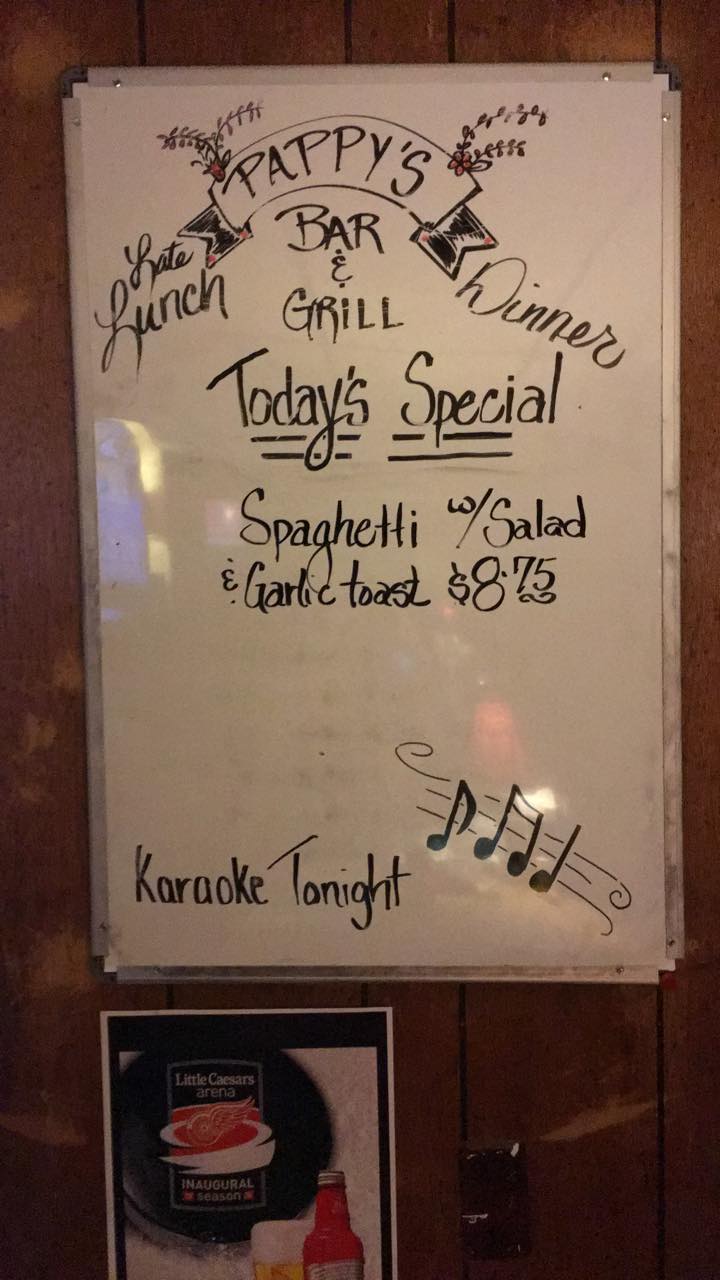 PAPPY'S
BAR
&
GRILL
Late
Lunch
Dinner
Today's Special
Spaghetti w/Salad
& Garlic toast $8.75
Karaoke Tonight
Little Caesars
arena
INAUGURAL
season